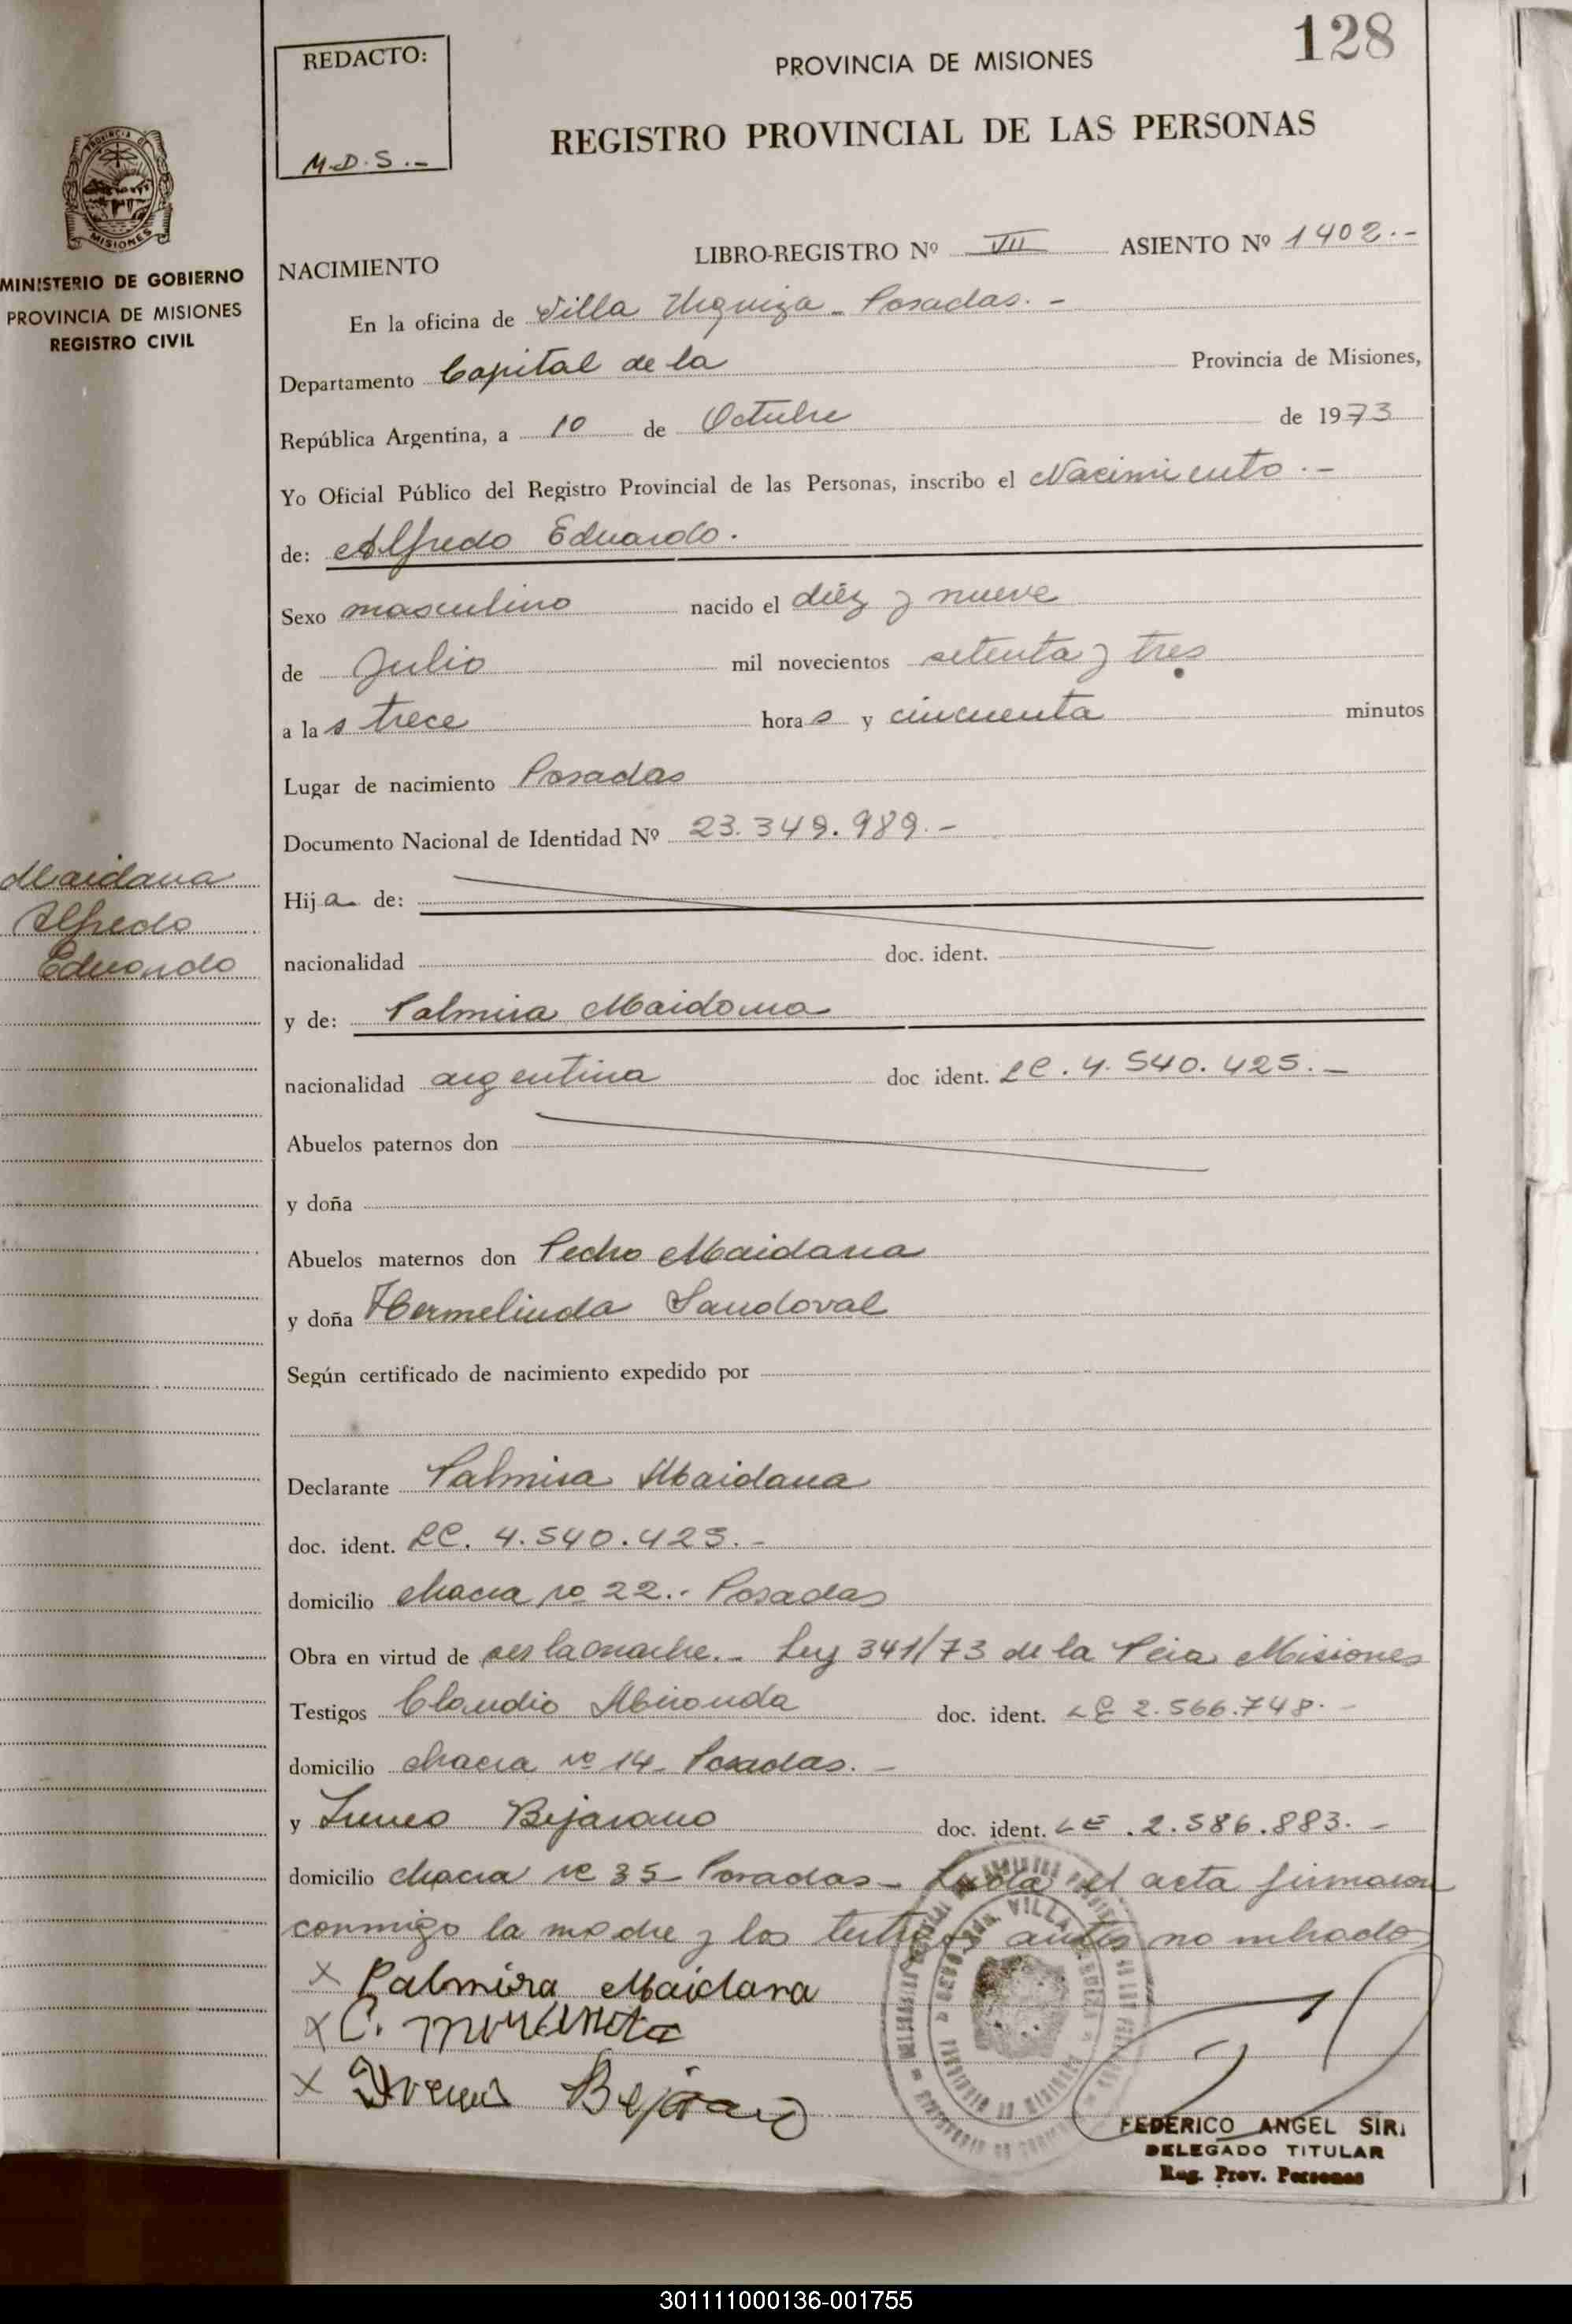 128
REDACTO:
M.D.S.-
PROVINCIA DE MISIONES
REGISTRO PROVINCIAL DE LAS PERSONAS
PROVINCIA
MISIONES
MINISTERIO DE GOBIERNO
PROVINCIA DE MISIONES
REGISTRO CIVIL
Maidana
Alfredo
Eduardo
NACIMIENTO LIBRO-REGISTRO Nº VII ASIENTO Nº 1402.-
En la oficina de Villa Urquiza - Posadas.-
Departamento Capital de la Provincia de Misiones,
República Argentina, a 10 de Octubre de 1973
Yo Oficial Público del Registro Provincial de las Personas, inscribo el Nacimiento.-
de: Alfredo Eduardo.
Sexo masculino nacido el diéz y nueve
de Julio mil novecientos setenta y tres
a las trece horas y cincuenta minutos
Lugar de nacimiento Posadas
Documento Nacional de Identidad Nº 23.349.989.-
Hija de:
nacionalidad doc. ident.
y de: Palmira Maidana
nacionalidad argentina doc ident. LC. 4.540.425.-
Abuelos paternos don
y doña
Abuelos maternos don Pedro Maidana
y doña Hermelinda Sandoval
Según certificado de nacimiento expedido por
Declarante Palmira Maidana
doc. ident. LC. 4.540.425.-
domicilio chacra nº 22.- Posadas
Obra en virtud de ser la madre.- Ley 341/73 de la Pcia Misiones
Testigos Claudio Miranda doc. ident. LE 2.566.748.-
domicilio chacra nº 14- Posadas.-
y Bejarano doc. ident. LE.2.586.883.-
domicilio chacra nº 35- Posadas- Leída el acta firmaron
conmigo la madre y los testigos antes nombrados
x Palmira Maidana
x C. Miranda
x Bejarano
VILLA
FEDERICO ANGEL SIR
DELEGADO TITULAR
Reg. Prov. Personas
301111000136-001755